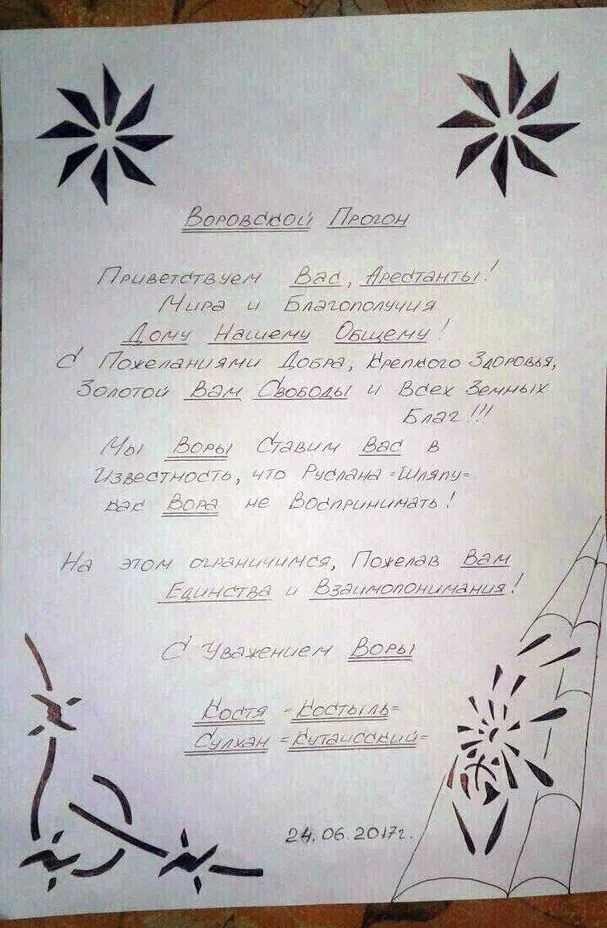 Воровской Прогон
Приветствуем Вас, Арестанты!
Мира и Благополучия
Дому Нашему Общему!
С Пожеланиями Добра, Крепкого Здоровья,
Золотой Вам Свободы и Всех Земных
Благ!!!
Мы Воры Ставим Вас в
Известность, что Руслана =Шляпу=
как Вора не Воспринимать!
На этом ограничимся, Пожелав Вам
Единства и Взаимопонимания!
С Уважением Воры
Костя =Костыль=
Сулхан =Кутаисский=
24.06.2017г.